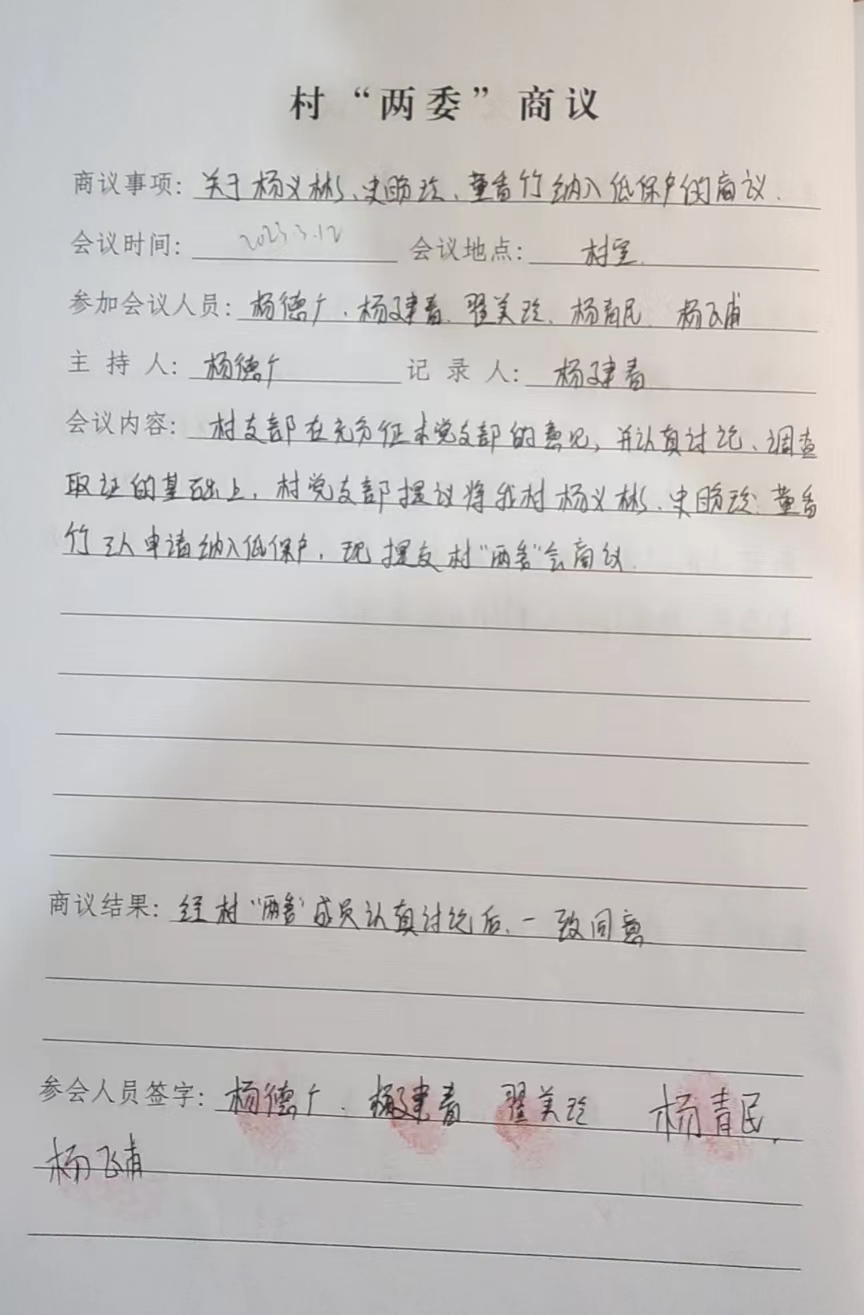 村“两委”商议
商议事项：关于杨义彬、史盼珍、董香竹纳入低保户的商议.
会议时间：2023.3.12 会议地点：村室.
参加会议人员：杨德广、杨建春、翟美玲、杨青民、杨飞甫
主持人：杨德广 记录人：杨建春
会议内容：村支部在充分征求党支部的意见，并认真讨论、调查
取证的基础上，村党支部提议将我村杨义彬、史盼珍、董香
竹三人申请纳入低保户，现提交村“两委”会商议.
商议结果：经村“两委”成员认真讨论后，一致同意
参会人员签字：杨德广、杨建春 翟美玲 杨青民，
杨飞甫